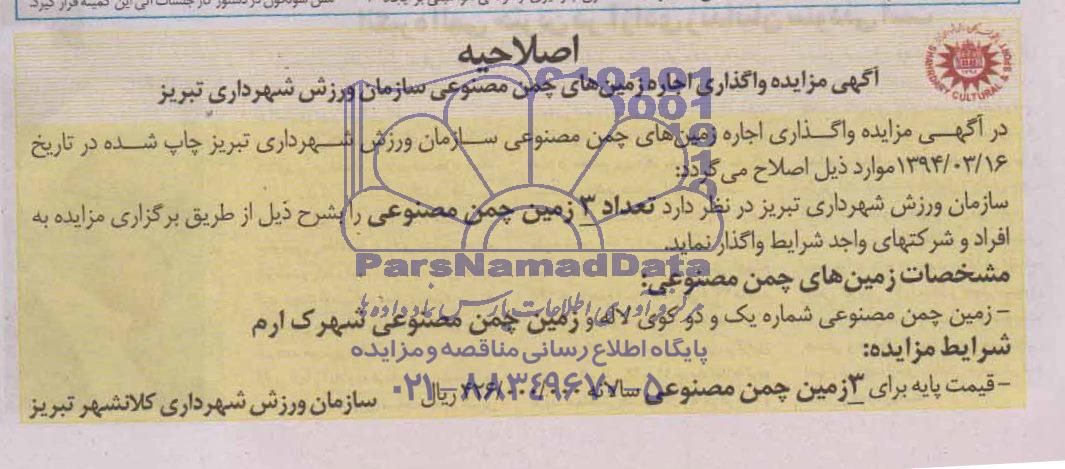 اصلاحیه
آگهی مزایده واگذاری اجاره زمین‌های چمن مصنوعی سازمان ورزش شهرداری تبریز
در آگهی مزایده واگذاری اجاره زمین‌های چمن مصنوعی سازمان ورزش شهرداری تبریز چاپ شده در تاریخ
۱۳۹۴/۰۳/۱۶ موارد ذیل اصلاح می‌گردد:
سازمان ورزش شهرداری تبریز در نظر دارد تعداد ۳ زمین چمن مصنوعی را بشرح ذیل از طریق برگزاری مزایده به
افراد و شرکتهای واجد شرایط واگذار نماید.
ParsNamadData
مشخصات زمین‌های چمن مصنوعی:
- زمین چمن مصنوعی شماره یک و دو کوی لاله و زمین چمن مصنوعی شهرک ارم
شرایط مزایده:
پایگاه اطلاع رسانی مناقصه و مزایده
- قیمت پایه برای ۳ زمین چمن مصنوعی سالانه ریال
۰۲۱-۸۸۳۴۹۶۷۰-۵
سازمان ورزش شهرداری کلانشهر تبریز